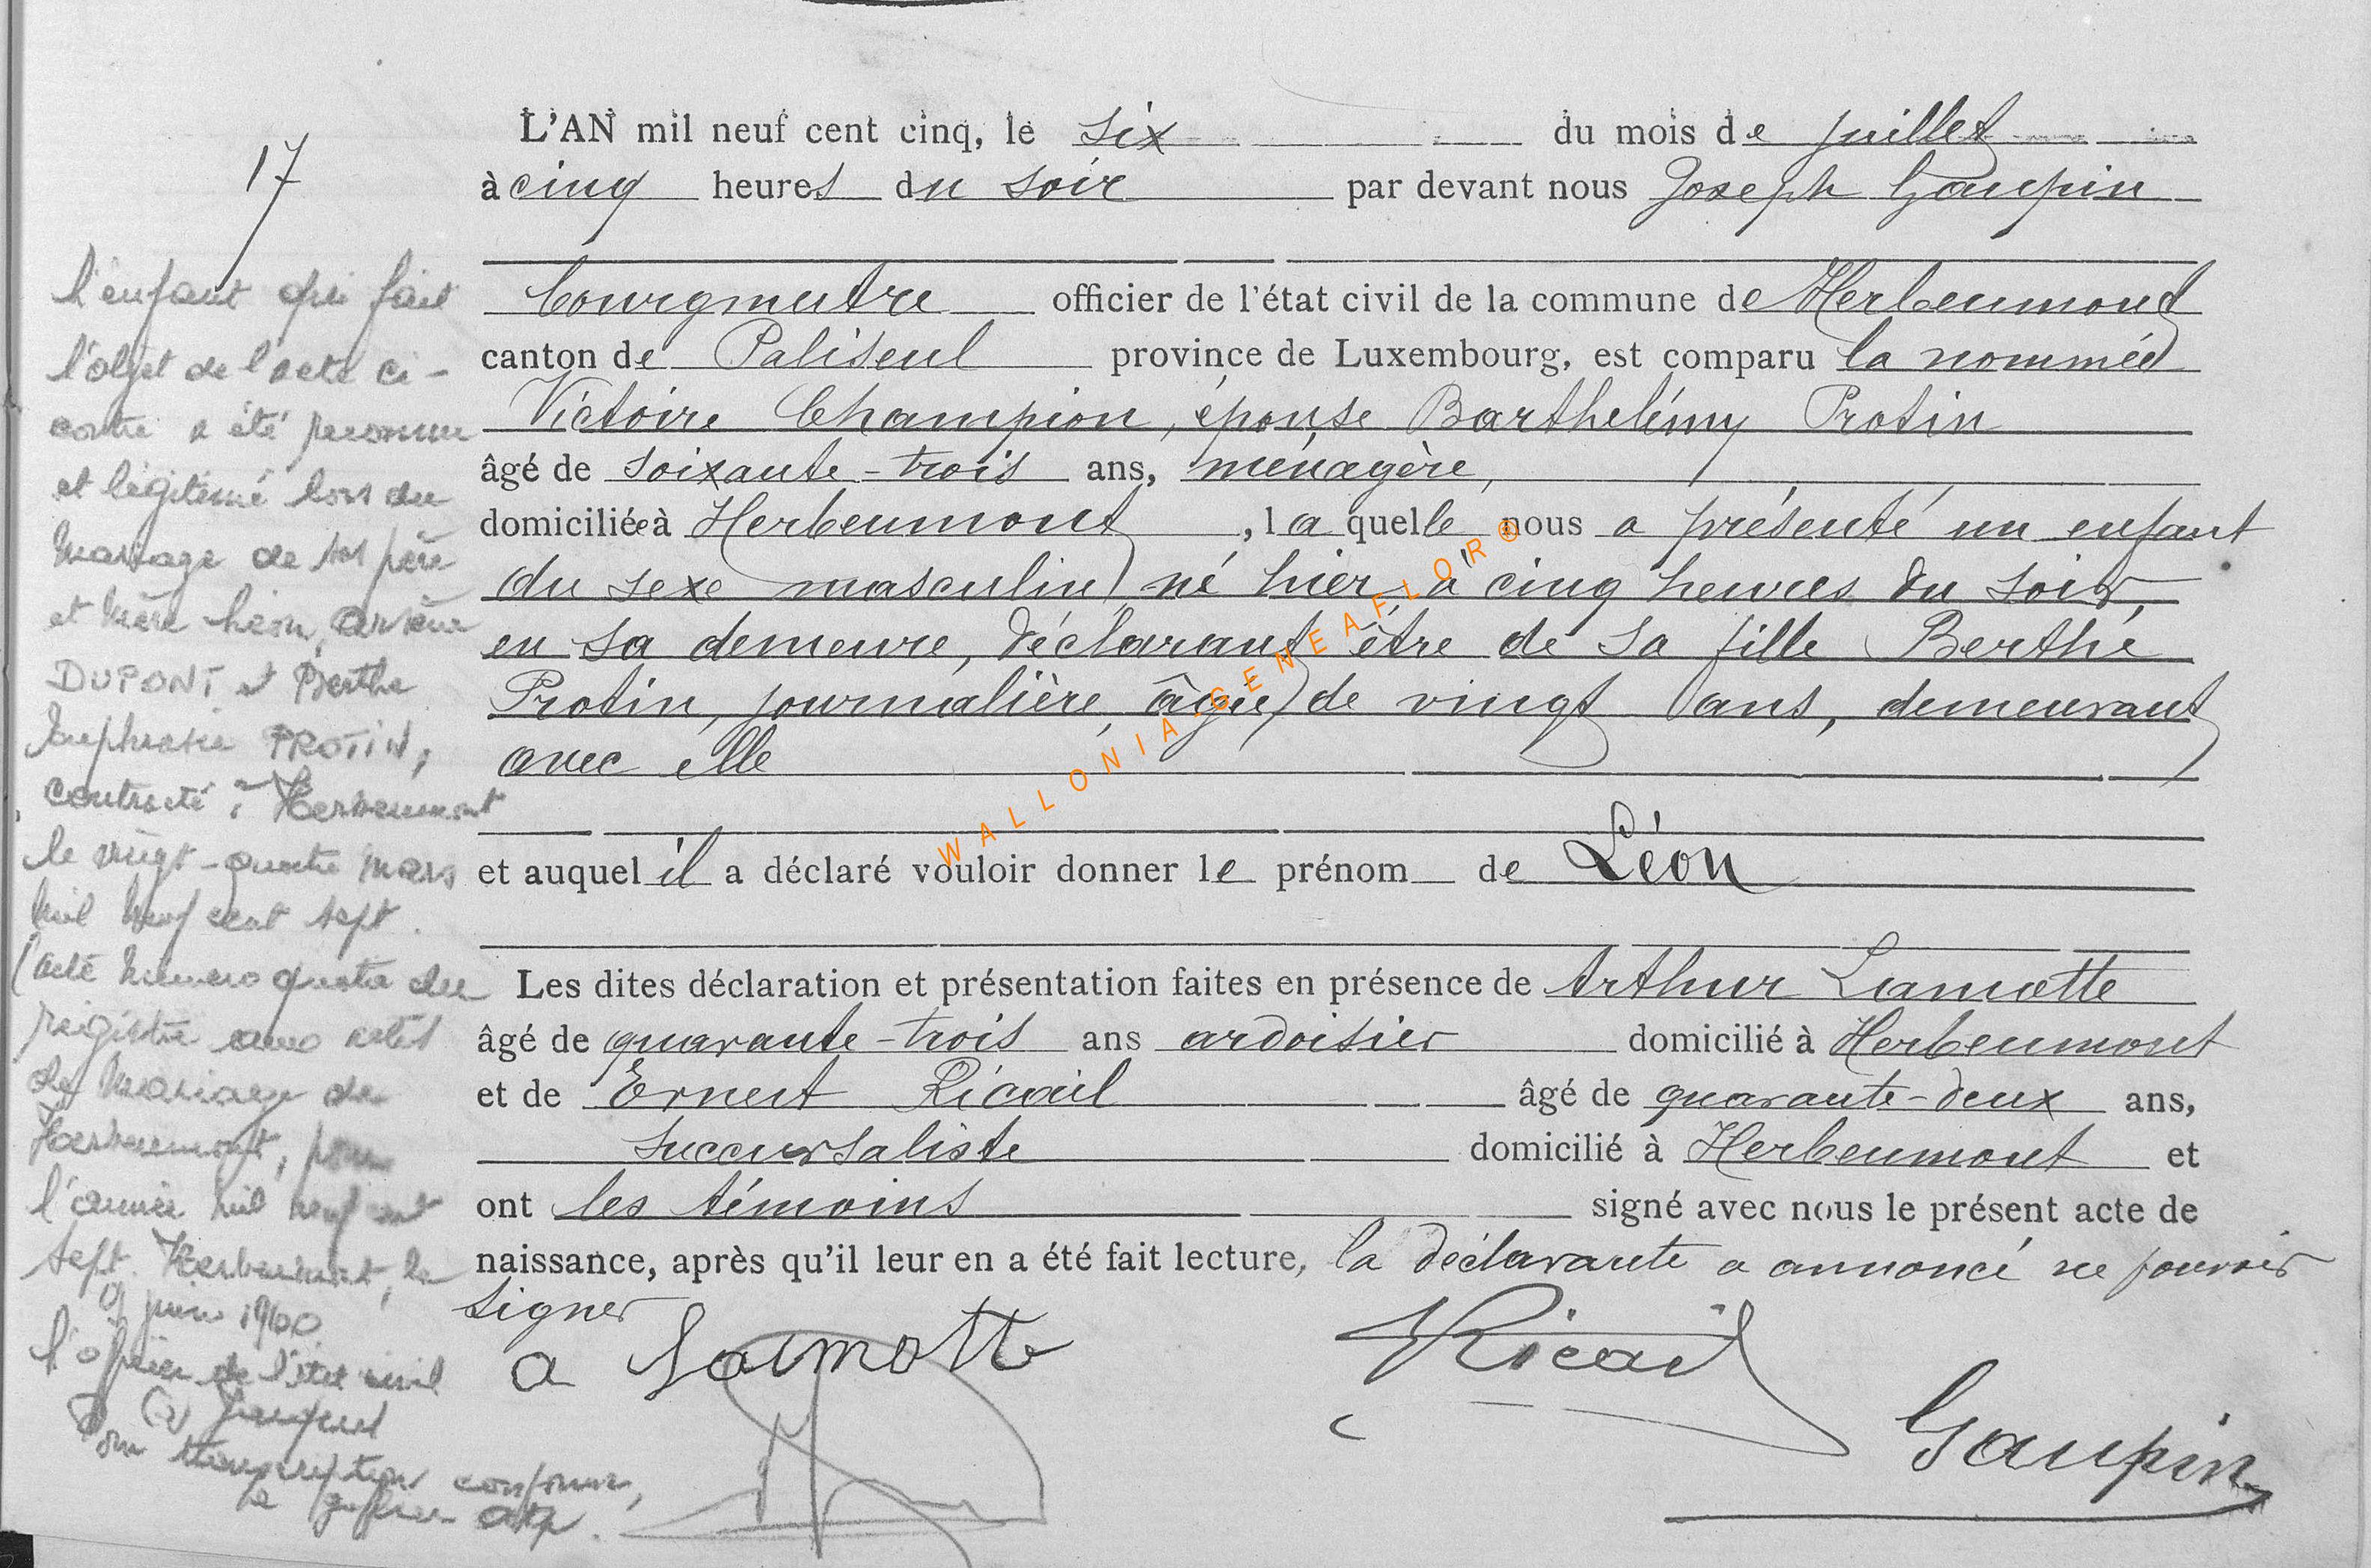 17
L'AN mil neuf cent cinq, le six du mois de juillet
à cinq heures du soir par devant nous Joseph Gaupin
bourgmestre officier de l'état civil de la commune de Herbeumont
canton de Paliseul province de Luxembourg, est comparu la nommée
Victoire Champion, épouse Barthelémy Protin
âgé de soixante-trois ans, ménagère,
domiciliée à Herbeumont, laquelle nous a présenté un enfant
du sexe masculin, né hier à cinq heures du soir,
en sa demeure, déclarant être de sa fille Berthe
Protin, journalière, âgée de vingt ans, demeurant
avec elle
et auquel il a déclaré vouloir donner le prénom de Léon
Les dites déclaration et présentation faites en présence de Arthur Lamotte
âgé de quarante-trois ans ardoisier domicilié à Herbeumont
et de Ernest Ricail âgé de quarante-deux ans,
succursaliste domicilié à Herbeumont et
ont les témoins signé avec nous le présent acte de
naissance, après qu'il leur en a été fait lecture, la déclarante a annoncé ne pouvoir
signer
a Lamotte
Ricail
Gaupin
l'enfant qui fait
l'objet de l'acte ci-
contre a été reconnu
et légitimé lors du
mariage de ses père
et mère Léon, Arsène
DUPONT et Berthe
Euphrasie PROTIN,
contracté à Herbeumont
le vingt-quatre mars
mil neuf cent sept.
(acte numéro quatre du
registre aux actes
de mariage de
Herbeumont, pour
l'année mil neuf cent
sept. Herbeumont, le
juin 1960
l'officier de l'état civil
(s)
Pour transcription conforme,
le greffier
WALLONIA-GENEAFLOR®